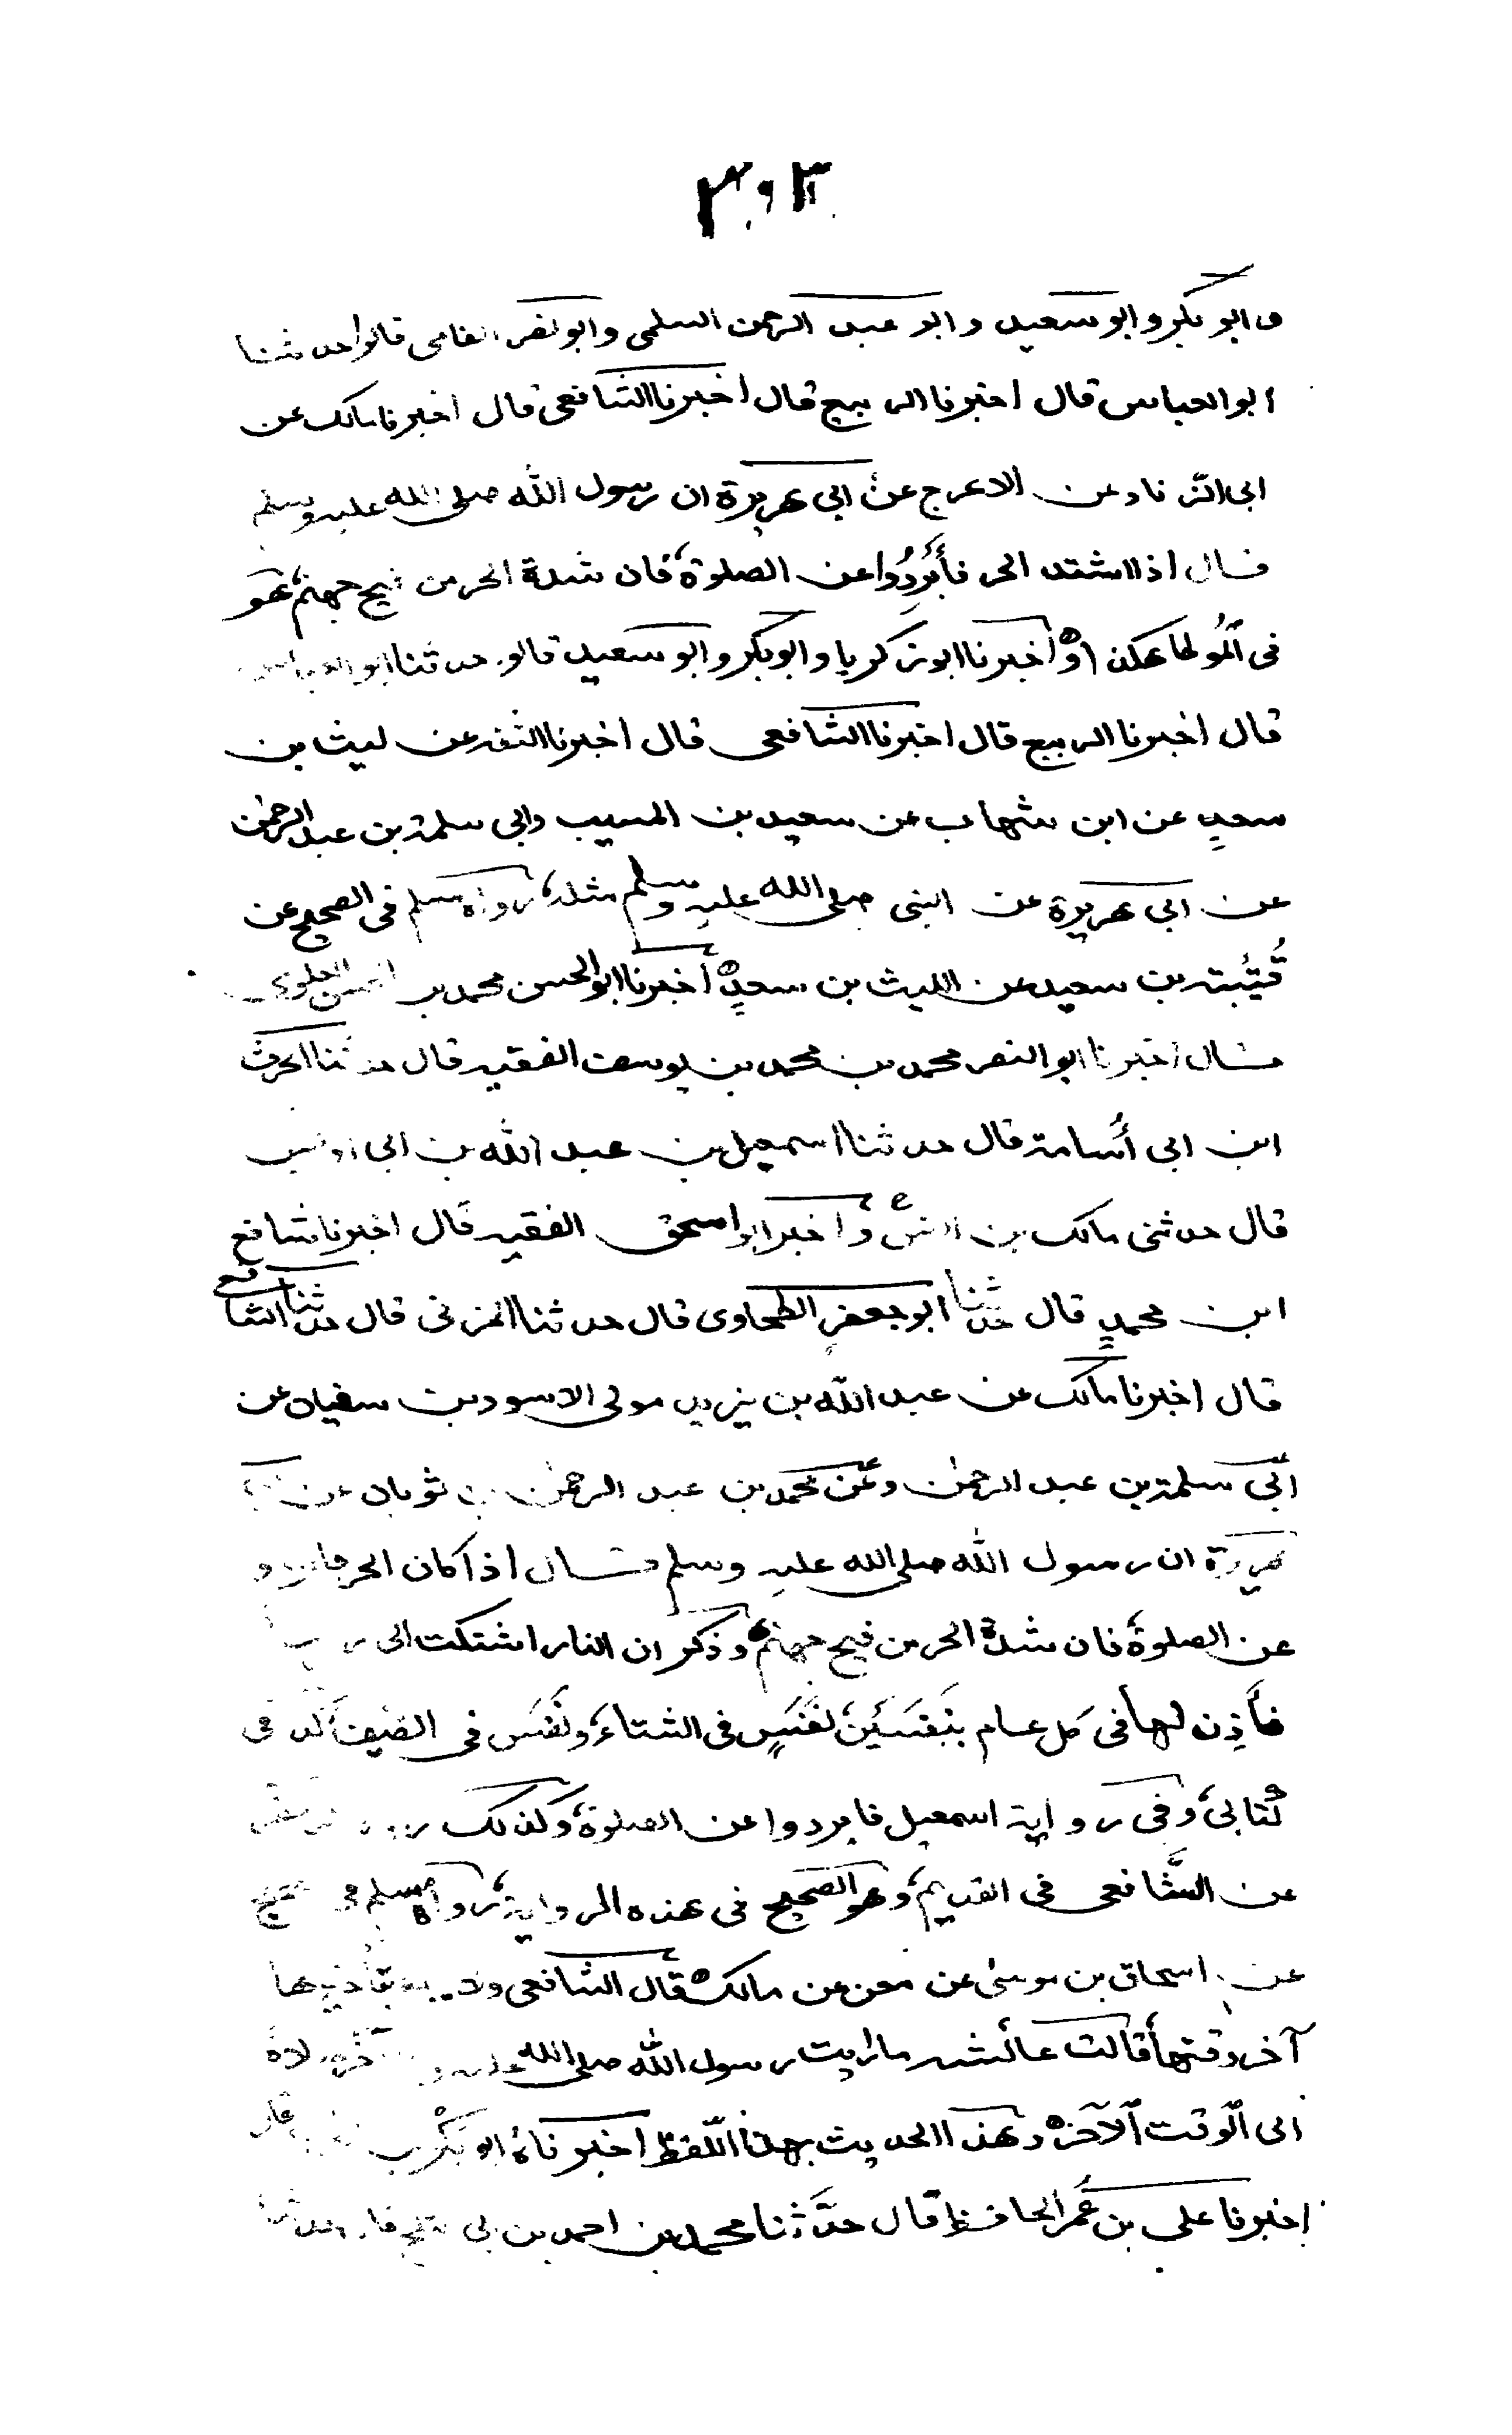 ٣٠٣
وابو بكر وابو سعيد وابو عبد الرحمن السلمي وابو نصر الفامي قالوا حدثنا
ابو العباس قال اخبرنا الربيع قال اخبرنا الشافعي قال اخبرنا مالك عن
ابي الزناد عن الاعرج عن ابي هريرة ان رسول الله صلى الله عليه وسلم
قال اذا اشتد الحر فأَبْرِدُوا عن الصلوة، فان شدة الحر من فيح جهنم، هو
في المُوطا هكذا، واخبرنا ابو زكريا وابو بكر وابو سعيد قالوا حدثنا ابو العباس
قال اخبرنا الربيع قال اخبرنا الشافعي قال اخبرنا الثقة عن ليث بن
سعدٍ عن ابن شهاب عن سعيد بن المسيب وابي سلمة بن عبد الرحمن
عن ابي هريرة عن النبي صلى الله عليه وسلم مثله، رواه مسلم في الصحيح عن
قُتَيْبَة بن سعيد عن الليث بن سعدٍ ه أخبرنا ابو الحسن محمد بن الحسن العلوي
قال اخبرنا ابو النصر محمد بن محمد بن يوسف الفقيه قال حدثنا الحرث
ابن ابي أُسامة قال حدثنا اسمعيل بن عبد الله بن ابي اويس
قال حدثني مالك بن انس ح وأخبرنا ابو اسحق الفقيه قال اخبرنا شافع
ابن محمدٍ قال حدثنا ابو جعفر الطحاوي قال حدثنا المزني قال حدثنا الشافعي
قال اخبرنا مالك عن عبد الله بن يزيد مولى الاسود بن سفيان عن
ابي سلمة بن عبد الرحمن وعن محمد بن عبد الرحمن بن ثوبان عن ابي
هريرة ان رسول الله صلى الله عليه وسلم قال اذا كان الحر فابردوا
عن الصلوة، فان شدة الحر من فيح جهنم، وذكر ان النار اشتكت الى ربها
فأَذِن لها في كل عام بنَفَسَيْن، نَفَسٍ في الشتاء، ونَفَس في الصيف، كذا في
كتابي، وفي رواية اسمعيل فابردوا عن الصلوة، وكذلك
عن الشَّافعي في القديم، وهو الصحيح في هذه الرواية، رواه مسلم في الصحيح
عن اسحاق بن موسى عن معن عن مالك ه قال الشافعي ولا يبلغ بتأخيرها
آخر وقتها، قالت عائشة ما رايت رسول الله صلى الله عليه وسلم أخر صلاة
الى الوقت الآخر ه وهذا الحديث بهذا اللَّفظ اخبرناهُ ابو بكر بن
اخبرنا علي بن عُمَر الحافظ قال حدَّثنا محمد بن احمد بن ابي الثلج قال حدثنا